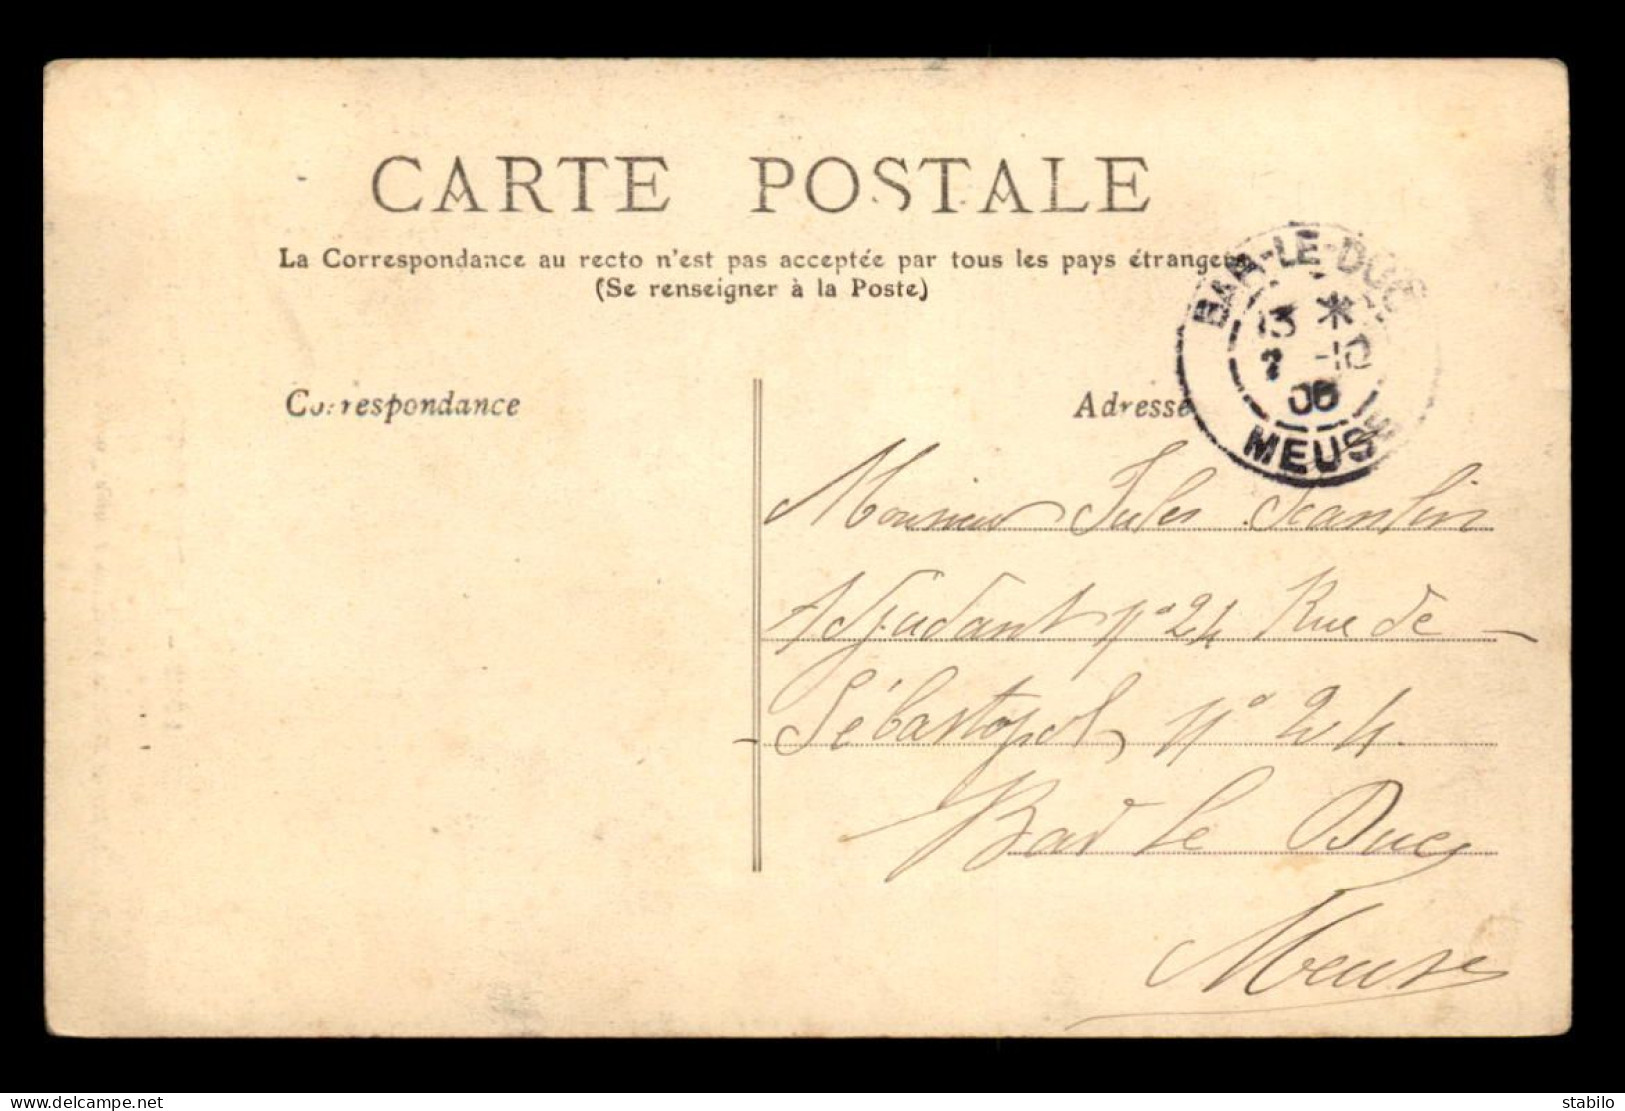 CARTE POSTALE
La Correspondance au recto n'est pas acceptée par tous les pays étrangers
(Se renseigner à la Poste)
BAR-LE-DUC
13 *
7 -10
06
MEUSE
Correspondance
Adresse
Monsieur Jules Jeanlin
Adjudant N° 24 Rue de
Sébastopol N° 24.
Bar le Duc
Meuse
www.delcampe.net
stabilo